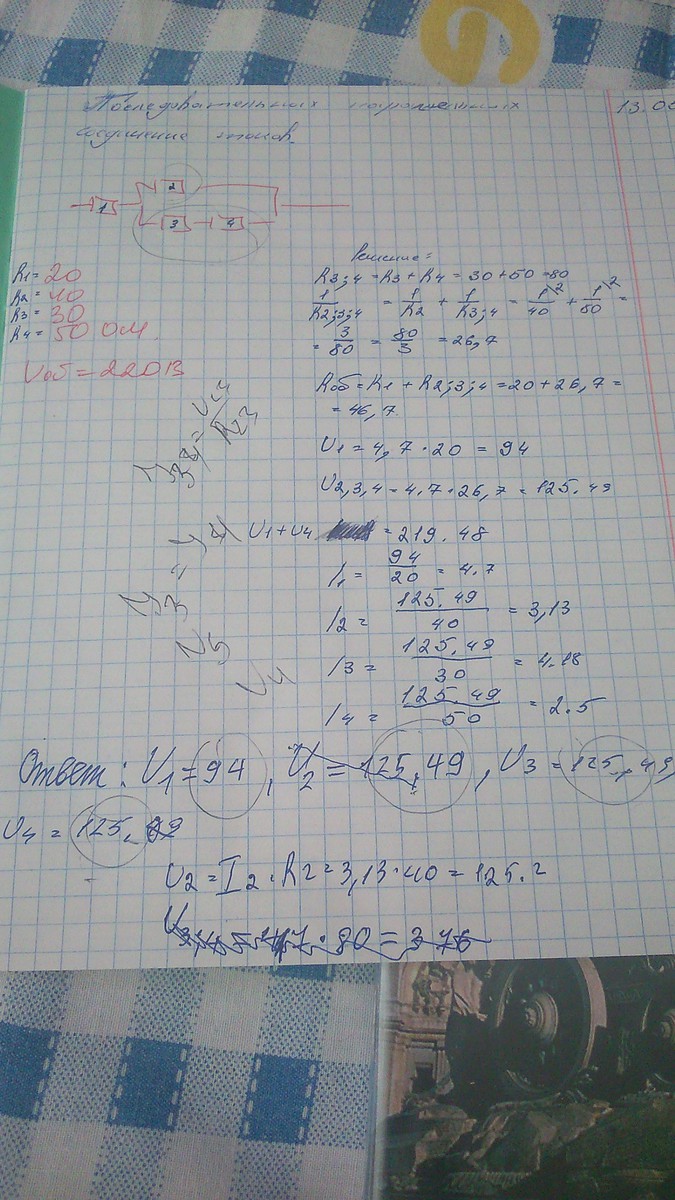 Последовательных параллельных
соединение токов.
13.0
1
2
3
4
R1 = 20
R2 = 40
R3 = 30
R4 = 50 Ом
Uоб = 220В
Решение =
R3;4 = R3 + R4 = 30 + 50 = 80
1/R2;3;4 = 1/R2 + 1/R3;4 = 1\2/40 + 1\2/80 =
= 3/80 = 80/3 = 26,7
Rоб = R1 + R2;3;4 = 20 + 26,7 =
= 46,7.
U1 = 4,7 · 20 = 94
U2,3,4 = 4.7 · 26,7 = 125.49
U1 + U4 = 219.48
I1 = 94/20 = 4.7
I2 = 125.49/40 = 3,13
I3 = 125.49/30 = 4.18
I4 = 125.49/50 = 2.5
U4
Ответ: U1 = 94, U2 = 125,49, U3 = 125,49,
U4 = 125.
U2 = I2 · R2 = 3,13 · 40 = 125.2
· 80 = 376